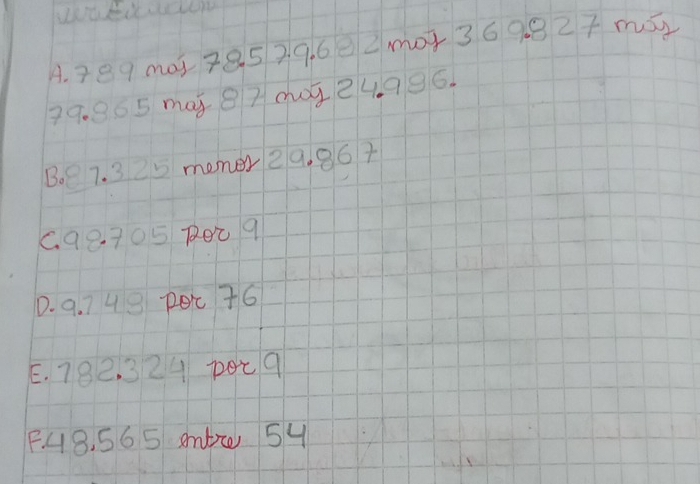 A. 789 más 78.579.682 más 369.827 más
79.865 más 87 más 24.986.
B. 87.325 menos 29.867
C. 98.705 por 9
D. 9.748 por 76
E. 782.324 por 9
F. 48.565 entre 54